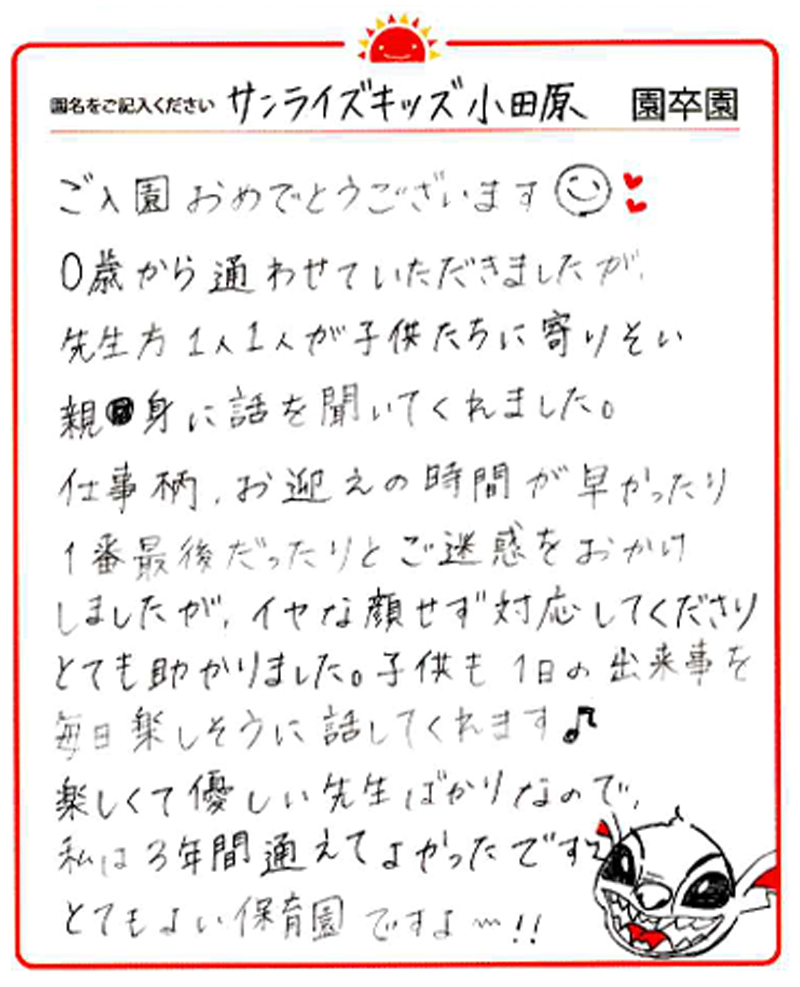 園名をご記入ください サンライズキッズ小田原 園卒園
ご入園おめでとうございます
0歳から通わせていただきましたが、
先生方1人1人が子供たちに寄りそい
親身に話を聞いてくれました。
仕事柄、お迎えの時間が早かったり
1番最後だったりとご迷惑をおかけ
しましたが、イヤな顔せず対応してくださり
とても助かりました。子供も1日の出来事を
毎日楽しそうに話してくれます♪
楽しくて優しい先生ばかりなので、
私は3年間通えてよかったです
とてもよい保育園ですよ〜!!